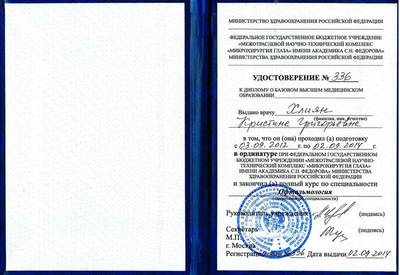 МИНИСТЕРСТВО ЗДРАВООХРАНЕНИЯ РОССИЙСКОЙ ФЕДЕРАЦИИ
ФЕДЕРАЛЬНОЕ ГОСУДАРСТВЕННОЕ БЮДЖЕТНОЕ УЧРЕЖДЕНИЕ
«МЕЖОТРАСЛЕВОЙ НАУЧНО-ТЕХНИЧЕСКИЙ КОМПЛЕКС
«МИКРОХИРУРГИЯ ГЛАЗА» ИМЕНИ АКАДЕМИКА С.Н. ФЕДОРОВА»
МИНИСТЕРСТВА ЗДРАВООХРАНЕНИЯ РОССИЙСКОЙ ФЕДЕРАЦИИ
УДОСТОВЕРЕНИЕ № 336
К ДИПЛОМУ О БАЗОВОМ ВЫСШЕМ МЕДИЦИНСКОМ
ОБРАЗОВАНИИ
Выдано врачу Хлиян
(фамилия, имя, отчество)
Кристине Григорьевне
в том, что он (она) проходил (а) подготовку
с 03.09.2012 г. по 02.09.2014 г.
в ординатуре ПРИ ФЕДЕРАЛЬНОМ ГОСУДАРСТВЕННОМ
БЮДЖЕТНОМ УЧРЕЖДЕНИИ «МЕЖОТРАСЛЕВОЙ НАУЧНО-
ТЕХНИЧЕСКИЙ КОМПЛЕКС «МИКРОХИРУРГИЯ ГЛАЗА»
ИМЕНИ АКАДЕМИКА С.Н. ФЕДОРОВА» МИНИСТЕРСТВА
ЗДРАВООХРАНЕНИЯ РОССИЙСКОЙ ФЕДЕРАЦИИ
и закончил (а) полный курс по специальности
Офтальмология
Руководитель учреждения (подпись)
Секретарь (подпись)
М.П.
г. Москва
Регистрационный № 336 Дата выдачи 02.09.2014